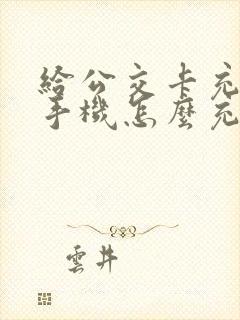 給公交卡充
手機怎麼充
雲井